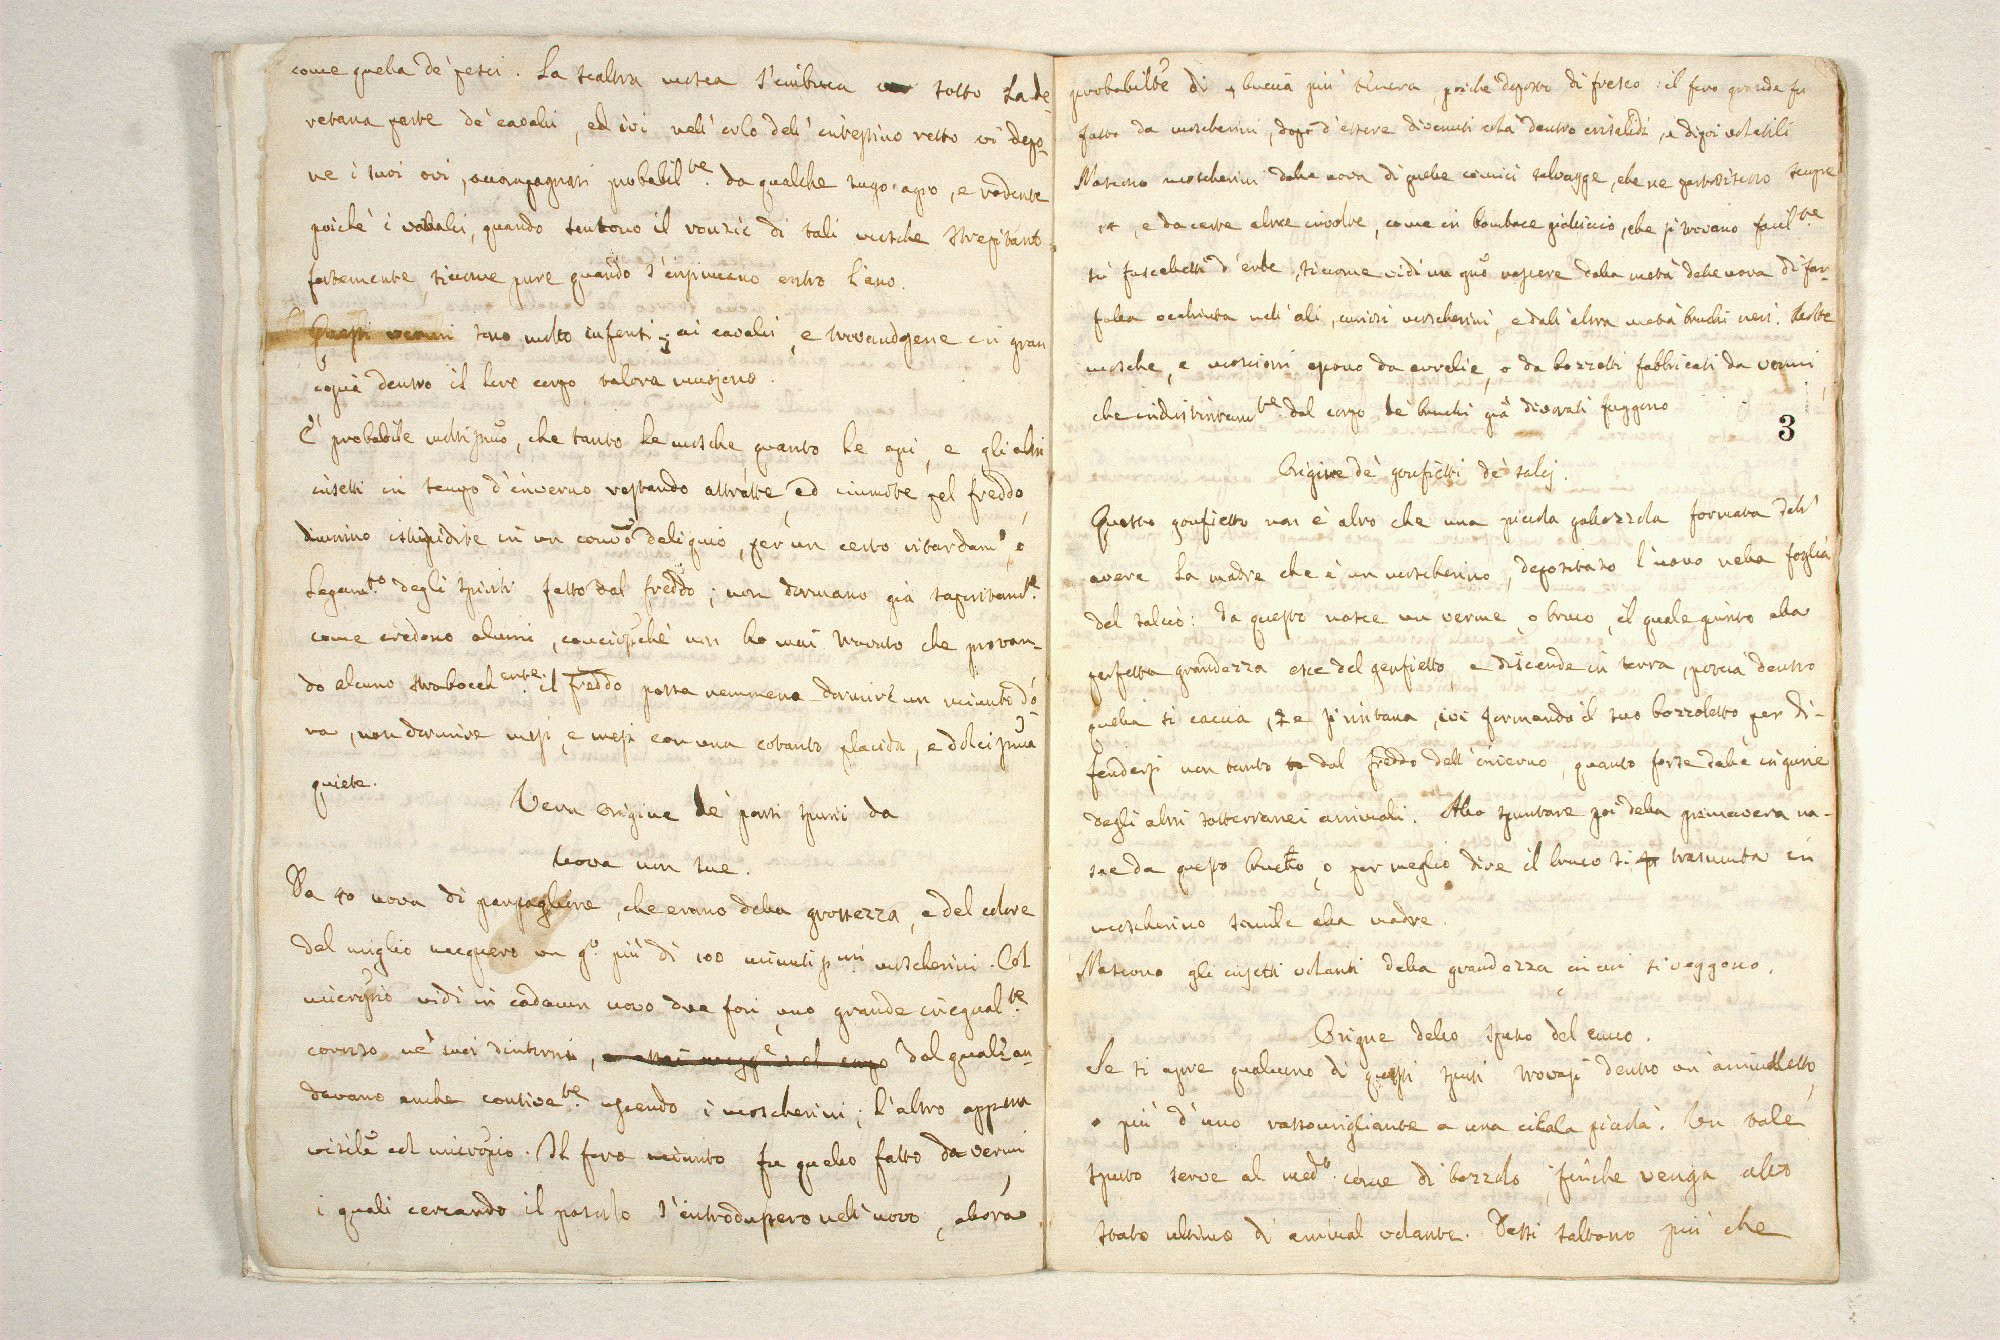 come quella de' pesci. La scaltra mosca s'imbuca sotto la de-
retana parte de' cavalli, ed ivi nell'orlo dell'intestino retto vi depo-
ne i suoi ovi, accompagnati probabilte. da qualche sugo agro, e rodente
poichè i cavalli, quando sentono il ronzìo di tali mosche strepitano
fortemente, siccome pure quando s'inspineano entro l'ano.
Questi vermi sono molto infensi ai cavalli, e trovandosene in gran
copia dentro il loro corpo talora muojono.
È probabile moltismo, che tanto le mosche quanto le api, e gli altri
insetti in tempo d'inverno restando attratte, ed immote pel freddo,
divenino istupidite in un contvo deliquio, per un certo ritardamto, o
legamto. degli spiriti fatto dal freddo; non dormano già saporitamte.
come credono alcuni, conciosiachè non ho mai trovato che provan-
do alcuno straboccherte. il freddo possa nemmeno dormire un minuto d'o-
ra, non dormire mesi, e mesi con una cotanto placida, e dolcissma
quiete.
Vera origine de' parti spurii da
uova non sue.
Da 40 uova di parpaglione, che erano della grossezza, e del colore
del miglio nacquero un go. più di 100 minutissmi moscherini. Col
microspio vidi in cadaun uovo due fori, uno grande inegualte.
corroso ne' suoi dintorni, dal quale an-
davano anche contivete. uscendo i moscherini; l'altro appena
visile col microspio. Il foro minuto fu quello fatto da vermi,
i quali cercando il pascolo s'introdussero nell'uovo, allora
probabilte di buccia più tenera, poichè deposto di fresco: il foro grande fu
fatto da moscherini, dopo d'essere divenuti colà dentro crisalidi, e dipoi volatili
Nascono moscherini dalle uova di quelle cimici selvagge, che ne partoriscono sempre
14, e da certe altre involte, come in bombace gialliccio, che si trovano facilte.
sù fuscelletti d'erbe, siccome vidi un gno nascere dalla metà delle uova di far-
falla occhiuta nell'ali, curiosi moscherini, e dall'altra metà bruchi neri. Molte
mosche, e moscioni escono da aurelie, o da bozzetti fabbricati da vermi,
che indistintamte. dal corpo de' bruchi già divorati fuggono
3
Origine de' gonfietti de' salcj.
Questo gonfietto non è altro che una picciola gallozzola formata dall'
avere la madre che è un moscherino, depositato l'uovo nella foglia
del salcio: da questo nasce un verme, o bruco, il quale giunto alla
perfetta grandezza esce del gonfietto, e discende in terra, poscia dentro
quella si caccia, e si rintana, ivi formando il suo bozzoletto, per di-
fendersi non tanto dal freddo dell'inverno, quanto forse dalle ingiurie
degli altri sotterranei animali. Allo spuntare poi della primavera na-
sce da questo bruco, o per meglio dire il bruco si trasmuta in
moscherino simile alla madre.
Nascono gli insetti volanti della grandezza in cui si veggono.
Origine dello sputo del cuco.
Se si apre qualcuno di questi sputi trovasi dentro un animaletto,
o più d'uno rassomigliante a una cicala picciola. Un tale
sputo serve al medo. come di bozzolo, finchè venga allo
stato ultimo di animal volante. Dessi saltano più che